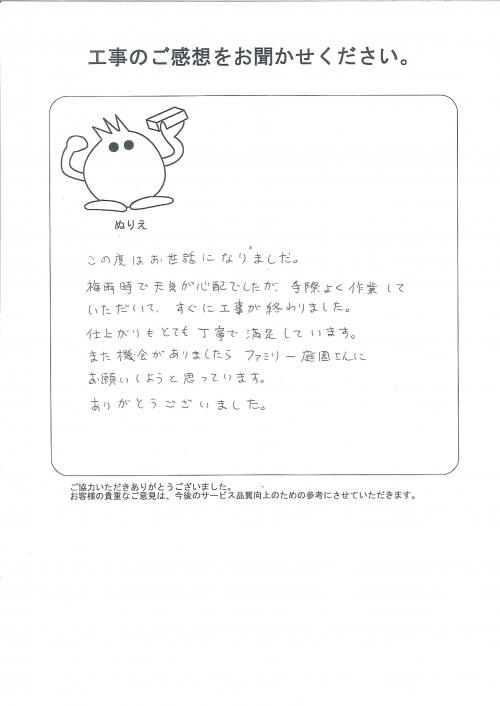 工事のご感想をお聞かせください。
ぬりえ
この度はお世話になりましだ。
梅雨時で天気が心配でしたが、手際よく作業して
いただいて、すぐに工事が終わりました。
仕上がりもとても丁寧で満足しています。
また機会がありましたらファミリー庭園さんに
お願いしようと思っています。
ありがとうございました。
ご協力いただきありがとうございました。
お客様の貴重なご意見は、今後のサービス品質向上のための参考にさせていただきます。